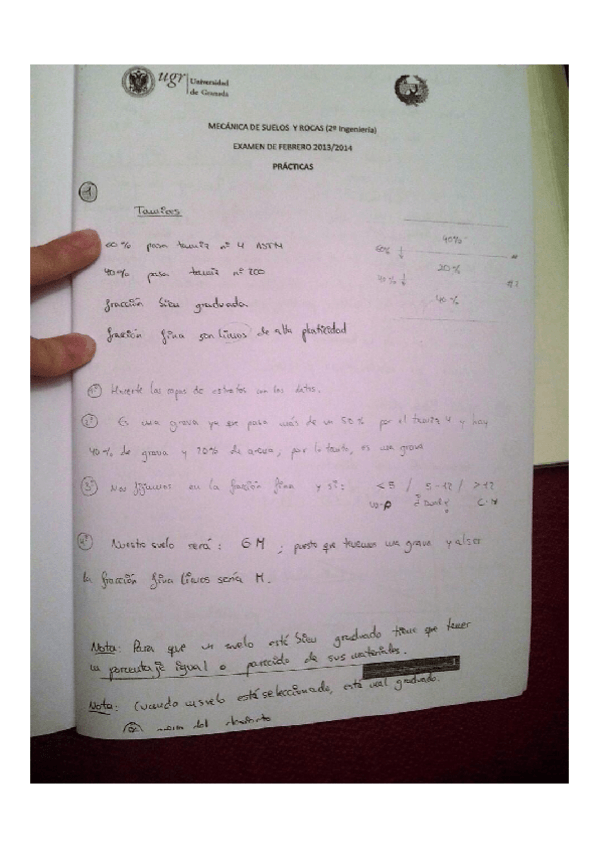 ugr Universidad
de Granada
MECÁNICA DE SUELOS Y ROCAS (2º Ingeniería)
EXAMEN DE FEBRERO 2013/2014
PRÁCTICAS
1
Tamices
60% pasa tamiz nº 4 ASTM
40% pasa tamiz nº 200
fracción bien graduada
fracción fina son limos de alta plasticidad
40%
60%
20%
40%
40%
1º Hacerte las capas de estratos con los datos.
2º Es una grava ya que pasa más de un 50% por el tamiz 4 y hay
40% de grava y 20% de arena, por lo tanto, es una grava
3º Nos fijamos en la fracción fina y si: <5 / 5-12 / >12
W-P C-M
4º Nuestro suelo será: GM ; puesto que tenemos una grava y al ser
la fracción fina limos sería M.
Nota: Para que un suelo esté bien graduado tiene que tener
un porcentaje igual o parecido de sus materiales.
1
Nota: Cuando un suelo está seleccionado, está mal graduado.